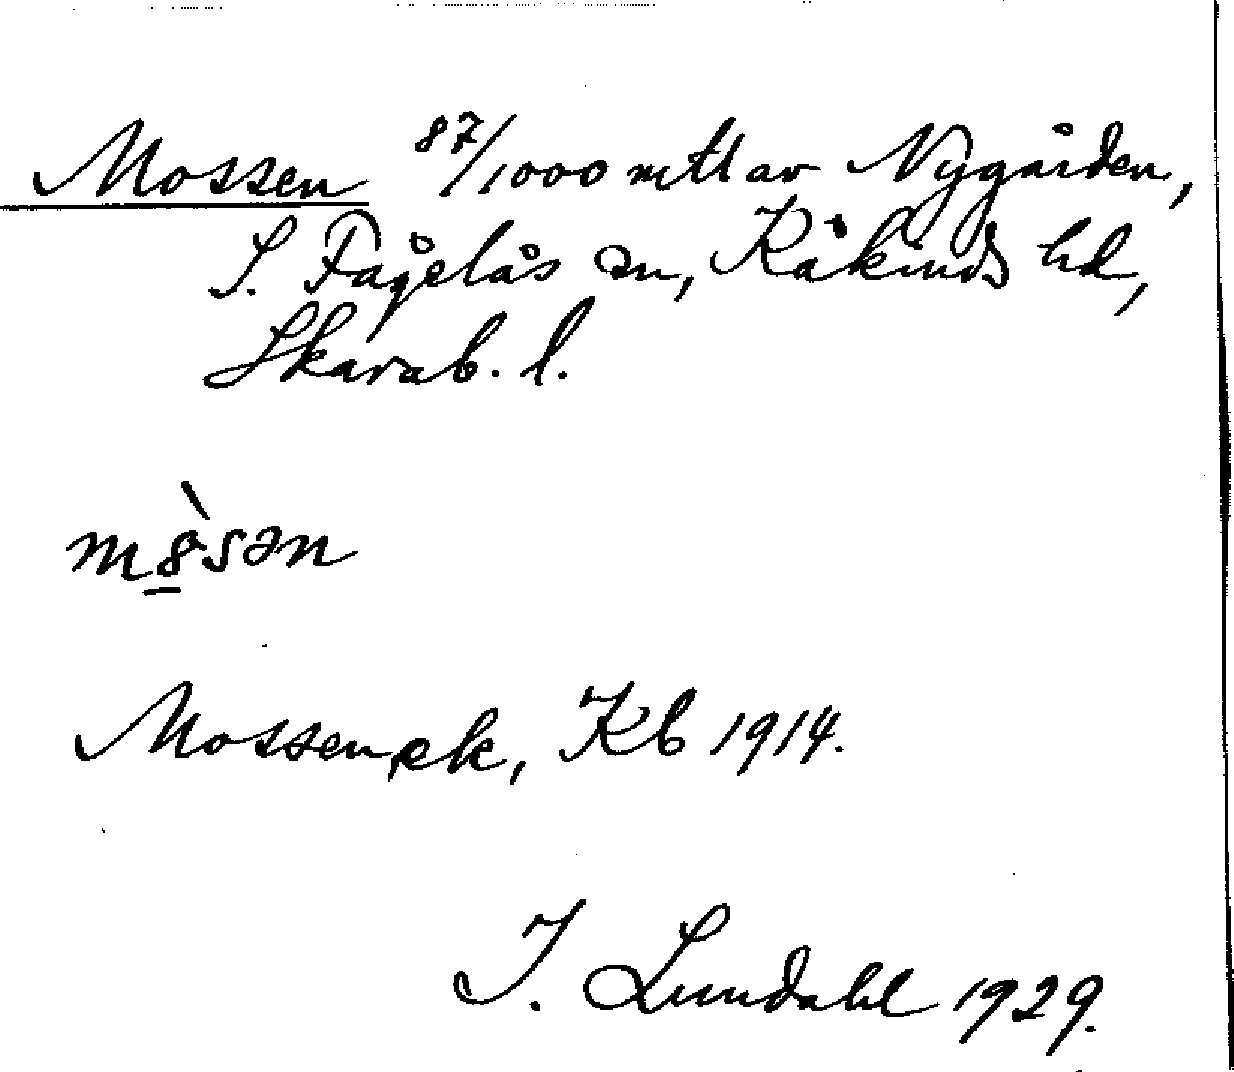 Mossen 87/1000 mtl av Nygården,
S. Fågelås sn, Kåkinds hd,
Skarab. l.
mò̱sən
Mossen, ek, Kb 1914.
I. Lundahl 1929.